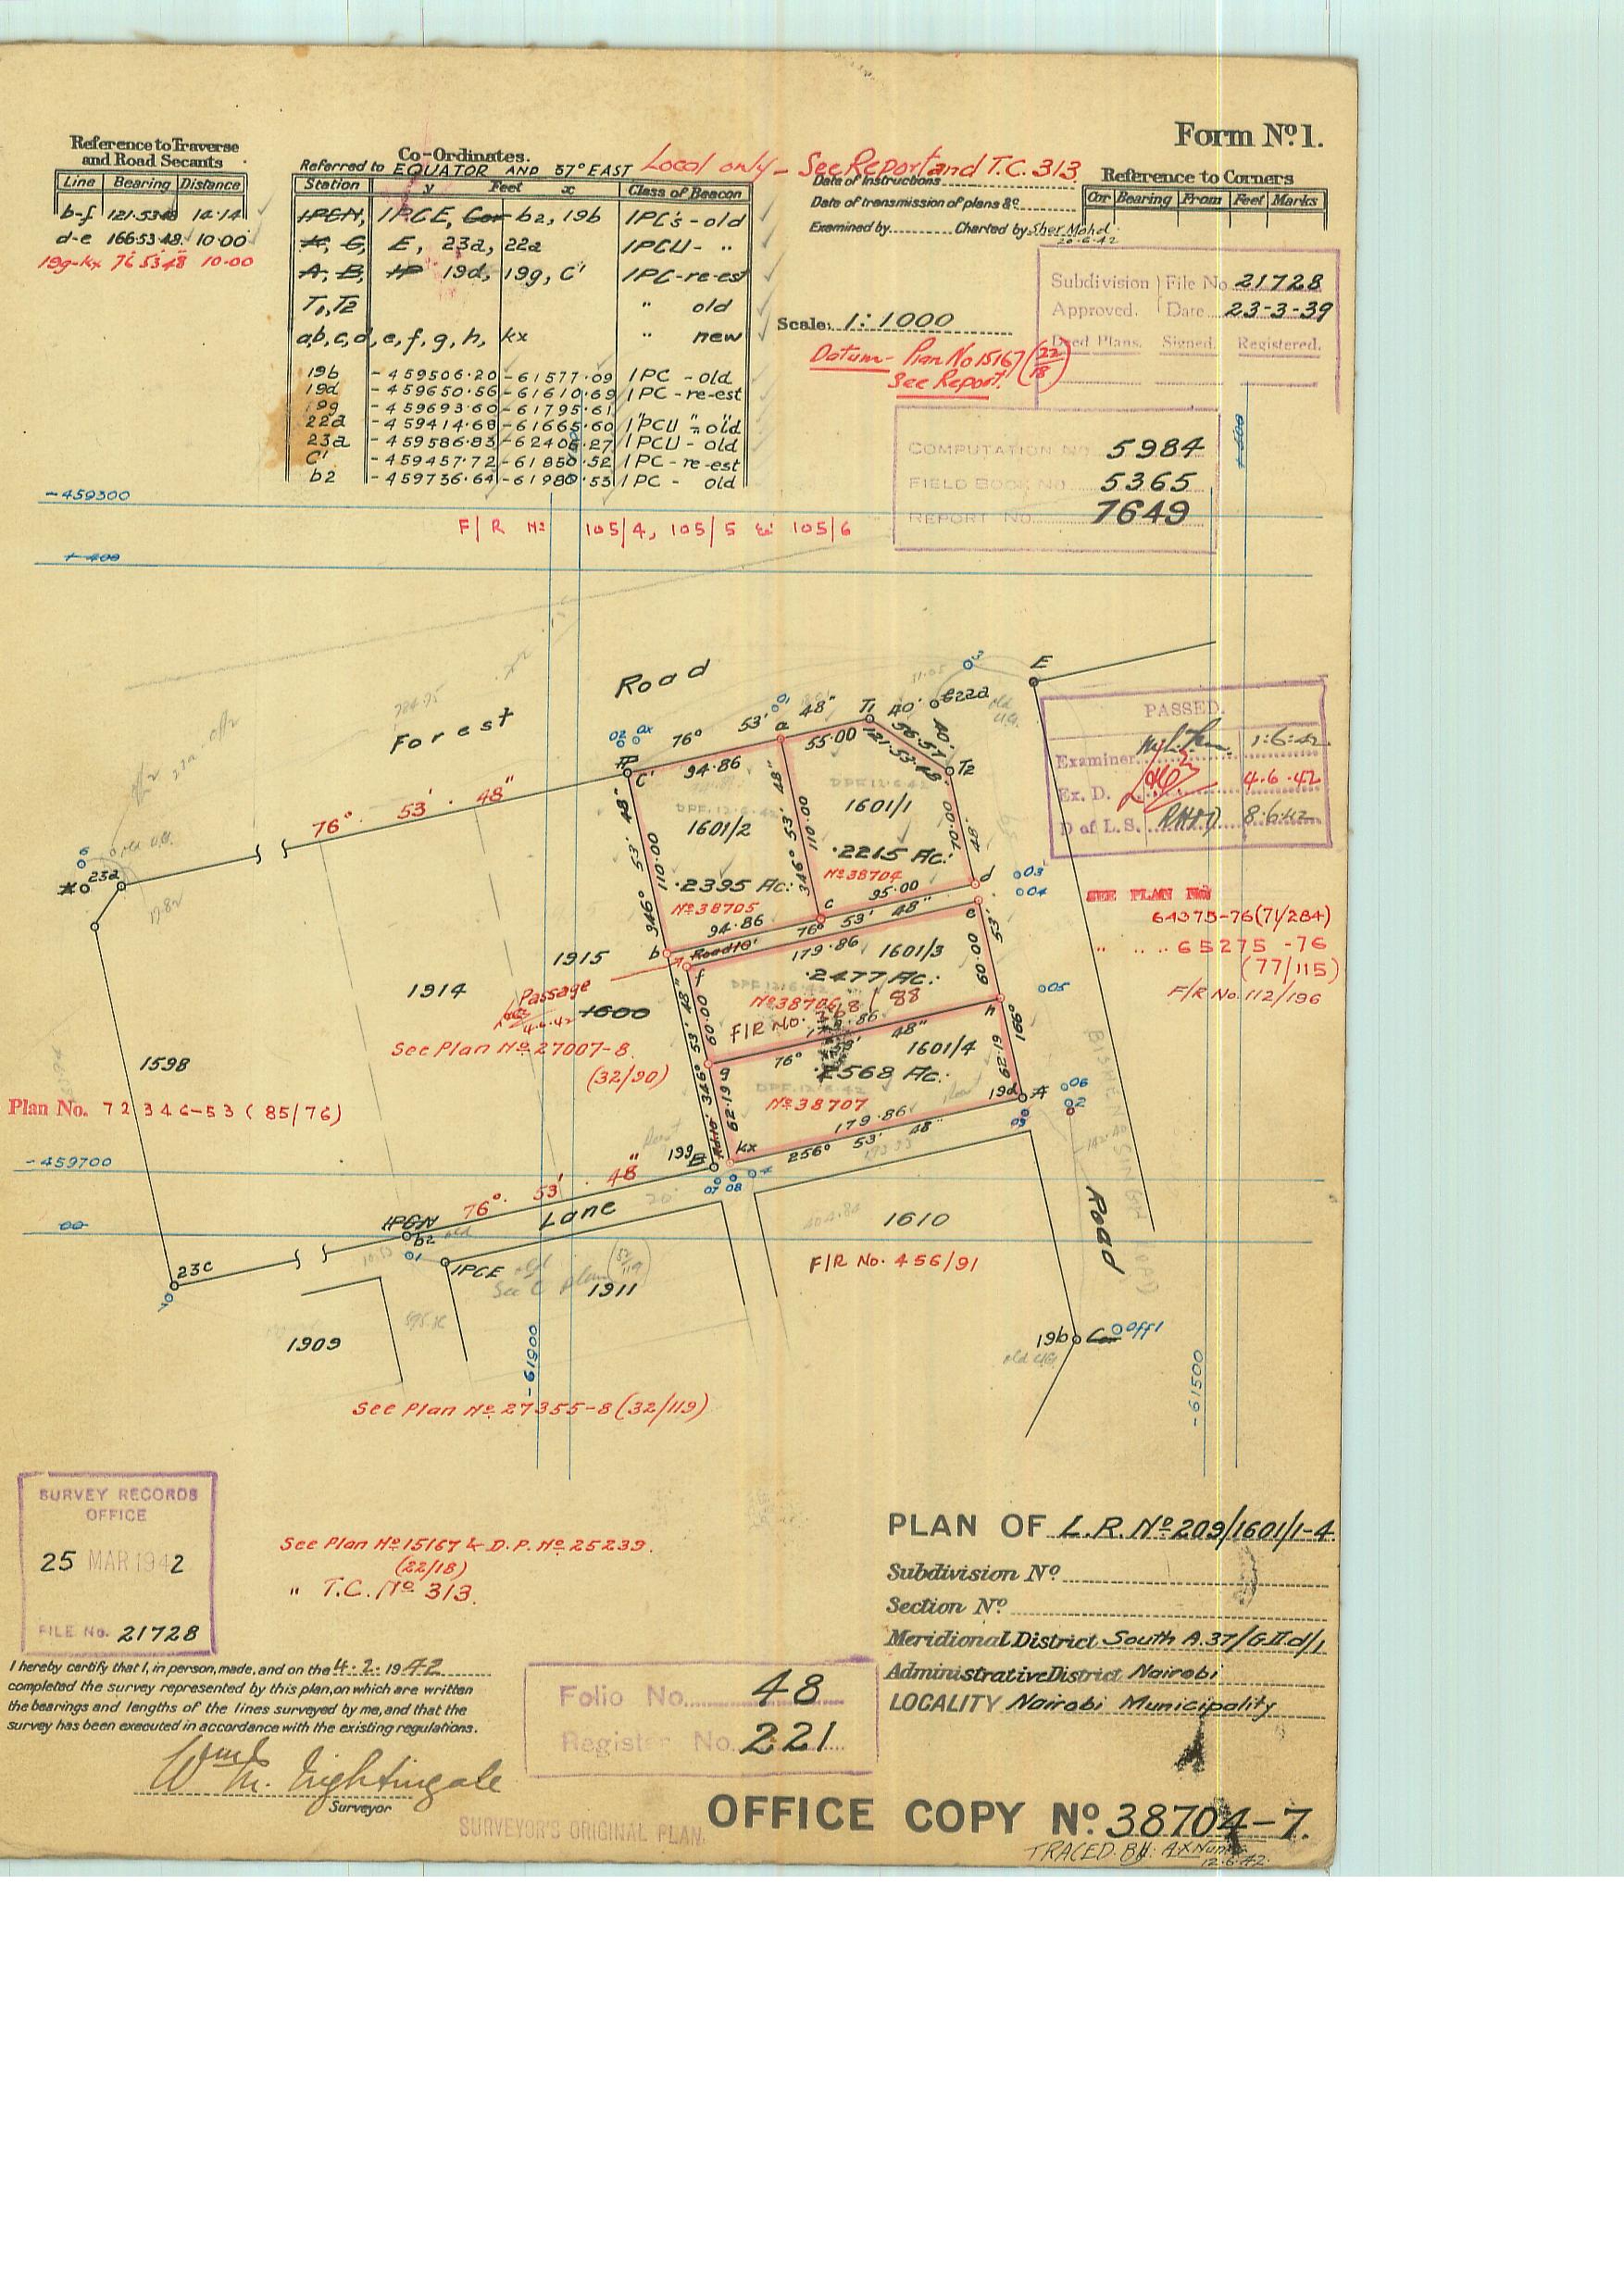 Form Nº 1.
Reference to Traverse
and Road Secants
Line Bearing Distance
b-f 121.53.48 14.14
d-e 166.53.48. 10.00
19g-kx 76 53 48 10.00
Co-Ordinates.
Referred to EQUATOR AND 57° EAST
Local only - See Report and T.C. 313
Station y Feet x Class of Beacon
IPCN, IPCE, Cor b2, 19b IPC's - old
E, 23a, 22a IPCU - "
A, B, 19d, 19g, C' IPC - re-est
T1, T2 " old
a,b,c,d,e,f,g,h, kx " new
19b -459506.20 -61577.09 IPC - old
19d -459650.56 -61610.69 IPC - re-est
19g -459693.60 -61795.61 " "
22a -459414.68 -61665.60 IPCU - old
23a -459586.83 -62406.27 IPCU - old
C' -459457.72 -61850.52 IPC - re-est
b2 -459736.64 -61980.53 IPC - old
Date of Instructions
Date of transmission of plans &c.
Examined by Charted by Sher Mohd.
20.6.42
Reference to Corners
Cor Bearing From Feet Marks
Scale: 1:1000
Datum - Plan No 15167 (22/18)
See Report.
Subdivision File No 21728
Approved. Date 23-3-39
Deed Plans. Signed. Registered.
COMPUTATION No. 5984
FIELD BOOK No. 5365
REPORT No. 7649
-459300
F/R Nº 105/4, 105/5 & 105/6
-400
-400
Road
Forest
E
76° 53' 48"
76° 53' 48"
94.86
55.00
T1 40'
22a
old
U.G.
121.53.48
56.57
40'
T2
C'
a
346° 53' 48"
110.00
1601/2
DPF. 12.6.42
.2395 Ac:
Nº 38705
346° 53' 48"
110.00
1601/1
DPF. 12.6.42
.2215 Ac:
Nº 38704
70.00
48"
d
03
04
95.00
76° 53' 48"
94.86
c
b
Road 10'
179.86
e
1601/3
.2477 Ac:
DPF. 12.6.42
Nº 38706
F/R No. 368/88
53'
60.00
05
h
166°
f
60.00
346° 53' 48"
76° 53' 48"
1601/4
.2568 Ac:
DPF. 12.6.42
Nº 38707
62.19
62.19
g
179.86
256° 53' 48"
19d A
06
19g B
kx
07 08
PASSED.
Examiner 1:6:42
Ex. D. 4.6.42
D of L.S. 8.6.42
SEE PLAN No
64375-76 (71/284)
" .. .. 65275-76
(77/115)
F/R No. 112/196
23a
old U.G.
1915
1914
1600
Passage
4.6.42
See Plan Nº 27007-8
(32/90)
1598
Plan No. 72346-53 (85/76)
-459700
76° 53' 48"
Lane
00
IPCN
b2
old
IPCE
23c
See C plan (32/119)
1911
1909
1610
F/R No. 456/91
Road
BISHEN SINGH ROAD
19b Cor Off 1
old U.G.
-61900
-61500
See Plan Nº 27355-8 (32/119)
SURVEY RECORDS
OFFICE
25 MAR 1942
FILE No. 21728
See Plan Nº 15167 & D.P. Nº 25239.
(22/18)
" T.C. Nº 313.
I hereby certify that I, in person, made, and on the 4.2.1942
completed the survey represented by this plan, on which are written
the bearings and lengths of the lines surveyed by me, and that the
survey has been executed in accordance with the existing regulations.
Wm M. Nightingale
Surveyor
Folio No. 48
Register No. 221
PLAN OF L.R. Nº 209/1601/1-4.
Subdivision Nº
Section Nº
Meridional District South A.37/G.II.d/1
Administrative District Nairobi
LOCALITY Nairobi Municipality
SURVEYOR'S ORIGINAL PLAN.
OFFICE COPY Nº 38704-7.
TRACED BY: A.X Nunes
12.6.42